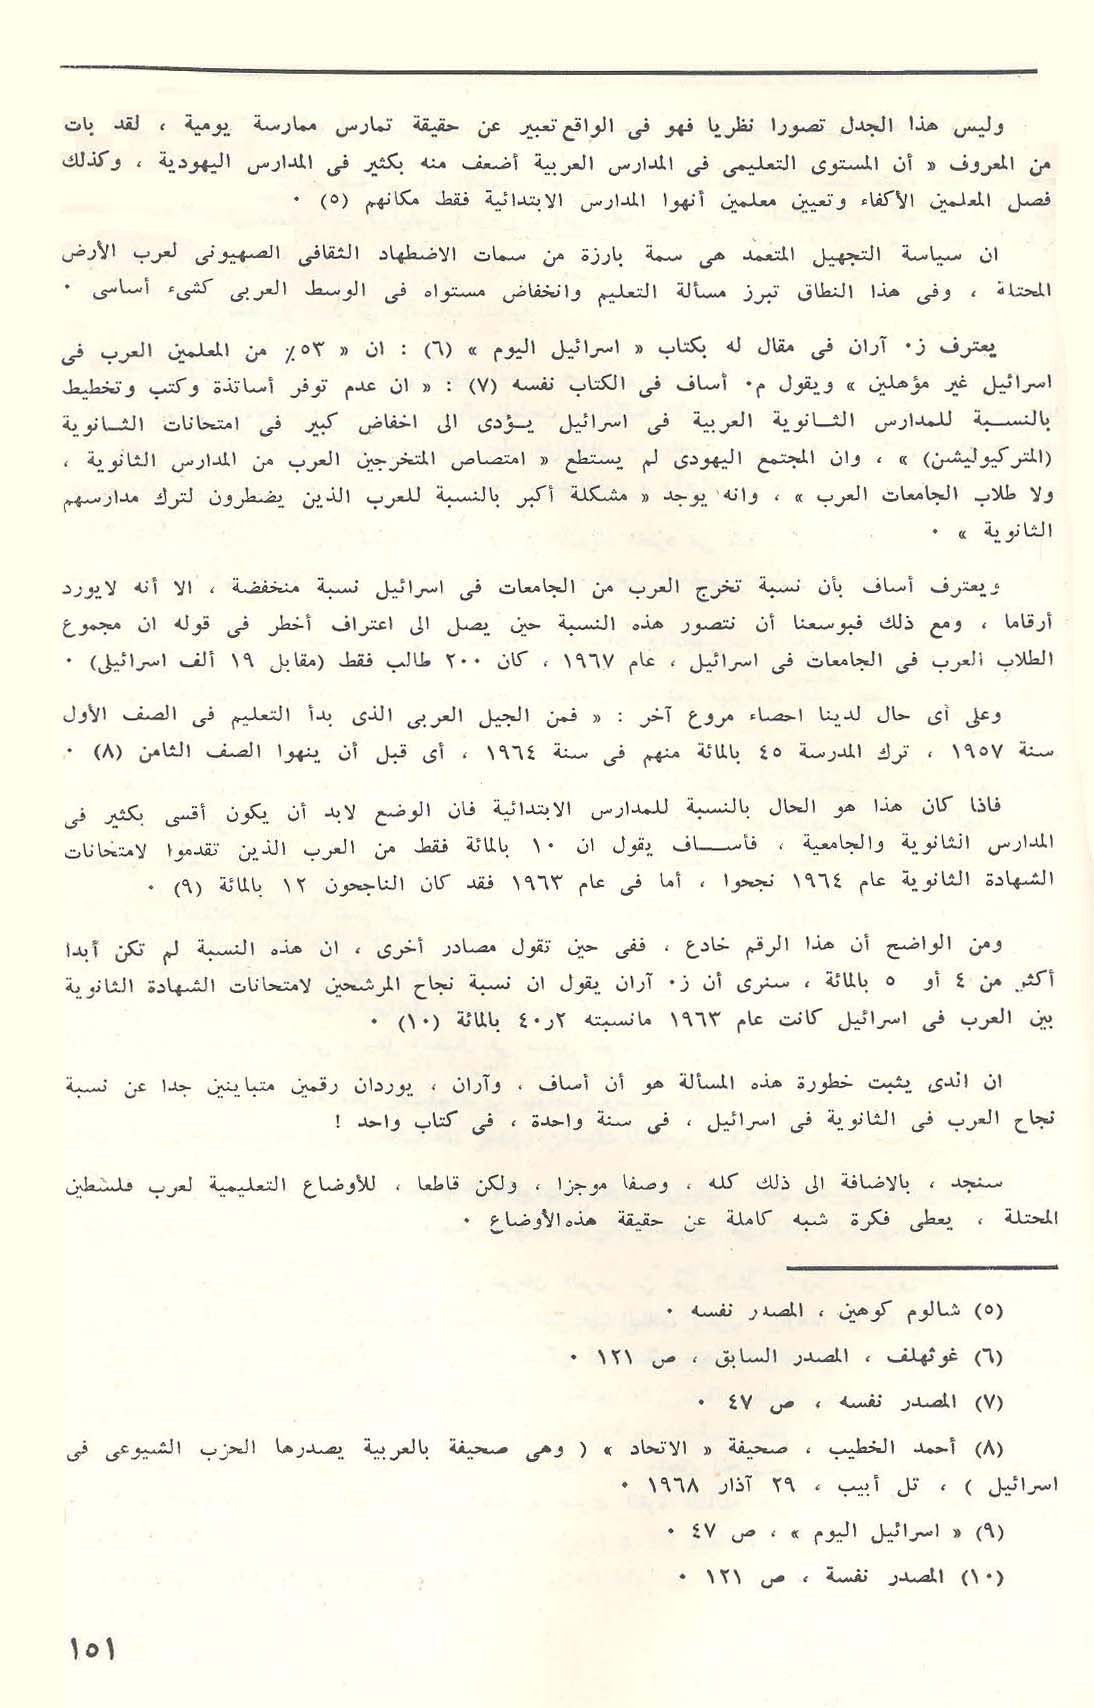 وليس هذا الجدل تصورا نظريا فهو فى الواقع تعبير عن حقيقة تمارس ممارسة يومية ، لقد بات
من المعروف « أن المستوى التعليمى فى المدارس العربية أضعف منه بكثير فى المدارس اليهودية ، وكذلك
فصل المعلمين الأكفاء وتعيين معلمين أنهوا المدارس الابتدائية فقط مكانهم (٥) ٠
ان سياسة التجهيل المتعمد هى سمة بارزة من سمات الاضطهاد الثقافى الصهيونى لعرب الأرض
المحتلة ، وفى هذا النطاق تبرز مسألة التعليم وانخفاض مستواه فى الوسط العربى كشىء أساسى ٠
يعترف ز٠ آران فى مقال له بكتاب « اسرائيل اليوم » (٦) : ان « ٥٣٪ من المعلمين العرب فى
اسرائيل غير مؤهلين » ويقول م٠ أساف فى الكتاب نفسه (٧) : « ان عدم توفر أساتذة وكتب وتخطيط
بالنسبة للمدارس الثانوية العربية فى اسرائيل يؤدى الى اخفاض كبير فى امتحانات الثانوية
(المتركيوليشن) » ، وان المجتمع اليهودى لم يستطع « امتصاص المتخرجين العرب من المدارس الثانوية ،
ولا طلاب الجامعات العرب » ، وانه يوجد « مشكلة أكبر بالنسبة للعرب الذين يضطرون لترك مدارسهم
الثانوية » ٠
ويعترف أساف بأن نسبة تخرج العرب من الجامعات فى اسرائيل نسبة منخفضة ، الا أنه لايورد
أرقاما ، ومع ذلك فبوسعنا أن نتصور هذه النسبة حين يصل الى اعتراف أخطر فى قوله ان مجموع
الطلاب العرب فى الجامعات فى اسرائيل ، عام ١٩٦٧ ، كان ٢٠٠ طالب فقط (مقابل ١٩ ألف اسرائيلى) ٠
وعلى أى حال لدينا احصاء مروع آخر : « فمن الجيل العربى الذى بدأ التعليم فى الصف الأول
سنة ١٩٥٧ ، ترك المدرسة ٤٥ بالمائة منهم فى سنة ١٩٦٤ ، أى قبل أن ينهوا الصف الثامن (٨) ٠
فاذا كان هذا هو الحال بالنسبة للمدارس الابتدائية فان الوضع لابد أن يكون أقسى بكثير فى
المدارس الثانوية والجامعية ، فأساف يقول ان ١٠ بالمائة فقط من العرب الذين تقدموا لامتحانات
الشهادة الثانوية عام ١٩٦٤ نجحوا ، أما فى عام ١٩٦٣ فقد كان الناجحون ١٢ بالمائة (٩) ٠
ومن الواضح أن هذا الرقم خادع ، ففى حين تقول مصادر أخرى ، ان هذه النسبة لم تكن أبدا
أكثر من ٤ أو ٥ بالمائة ، سنرى أن ز٠ آران يقول ان نسبة نجاح المرشحين لامتحانات الشهادة الثانوية
بين العرب فى اسرائيل كانت عام ١٩٦٣ مانسبته ٢ر٤٠ بالمائة (١٠) ٠
ان الذى يثبت خطورة هذه المسألة هو أن أساف ، وآران ، يوردان رقمين متباينين جدا عن نسبة
نجاح العرب فى الثانوية فى اسرائيل ، فى سنة واحدة ، فى كتاب واحد !
سنجد ، بالاضافة الى ذلك كله ، وصفا موجزا ، ولكن قاطعا ، للأوضاع التعليمية لعرب فلسطين
المحتلة ، يعطى فكرة شبه كاملة عن حقيقة هذه الأوضاع ٠
(٥) شالوم كوهين ، المصدر نفسه ٠
(٦) غوثهلف ، المصدر السابق ، ص ١٢١ ٠
(٧) المصدر نفسه ، ص ٤٧ ٠
(٨) أحمد الخطيب ، صحيفة « الاتحاد » ( وهى صحيفة بالعربية يصدرها الحزب الشيوعى فى
اسرائيل ) ، تل أبيب ، ٢٩ آذار ١٩٦٨ ٠
(٩) « اسرائيل اليوم » ، ص ٤٧ ٠
(١٠) المصدر نفسة ، ص ١٢١ ٠
١٥١